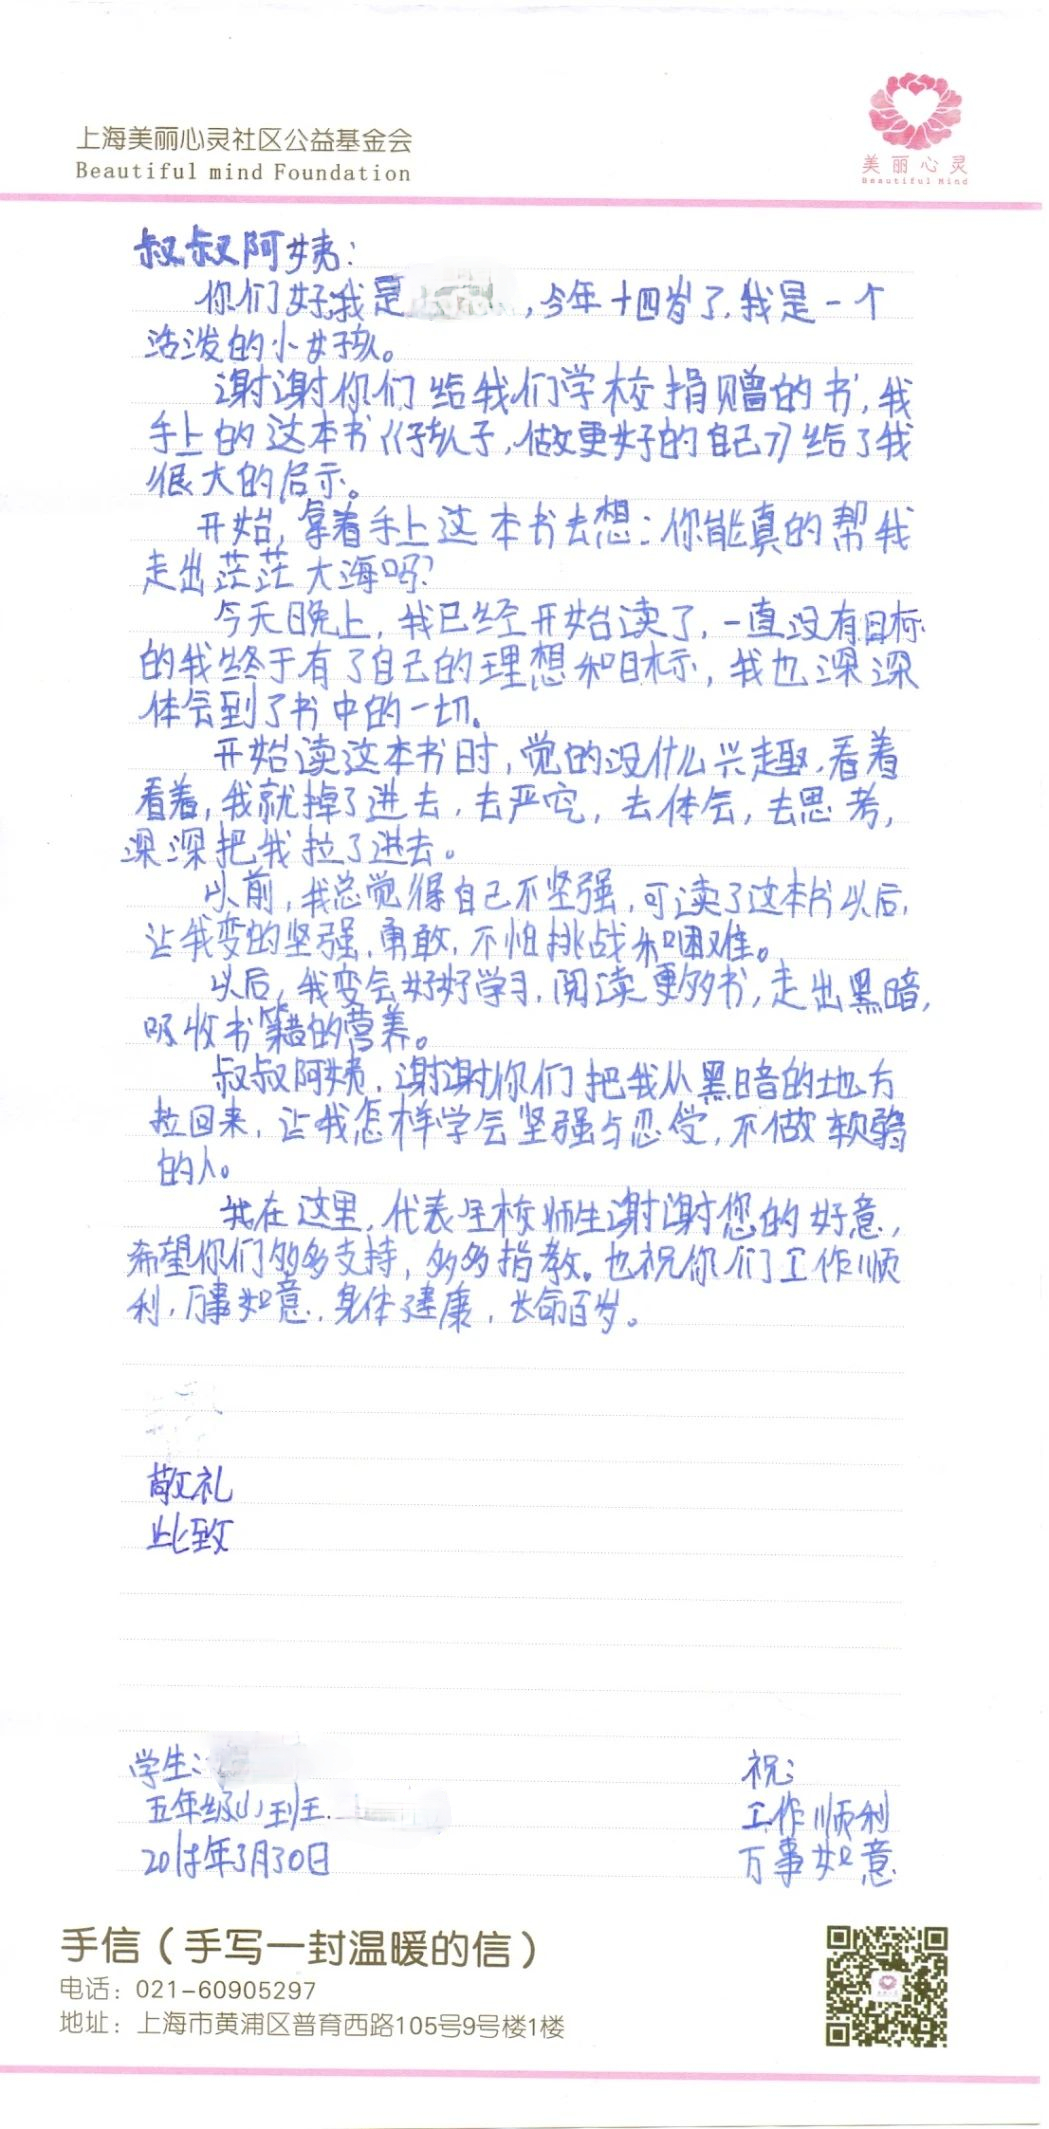 上海美丽心灵社区公益基金会
Beautiful mind Foundation
美丽心灵
Beautiful Mind
叔叔阿姨：
你们好，我是，今年十四岁了，我是一个
活泼的小女孩。
谢谢你们给我们学校捐赠的书，我
手上的这本书《孩子，做更好的自己》给了我
很大的启示。
开始，拿着手上这本书去想：你能真的帮我
走出茫茫大海吗？
今天晚上，我已经开始读了，一直没有目标
的我终于有了自己的理想和目标，我也深深
体会到了书中的一切。
开始读这本书时，觉的没什么兴趣，看着
看着，我就掉了进去，去严究，去体会，去思考，
深深把我拉了进去。
以前，我总觉得自己不坚强，可读了这本书以后，
让我变的坚强，勇敢，不怕挑战和困难。
以后，我变会好好学习，阅读更多书，走出黑暗，
吸收书籍的营养。
叔叔阿姨，谢谢你们把我从黑暗的地方
拉回来，让我怎样学会坚强与忍受，不做软弱
的人。
我在这里，代表全校师生谢谢您的好意，
希望你们多多支持，多多指教。也祝你们工作顺
利，万事如意，身体健康，长命百岁。
敬礼
此致
学生：
祝：
五年级(1)班
工作顺利
年3月30日
万事如意
手信（手写一封温暖的信）
电话：021-60905297
地址：上海市黄浦区普育西路105号9号楼1楼